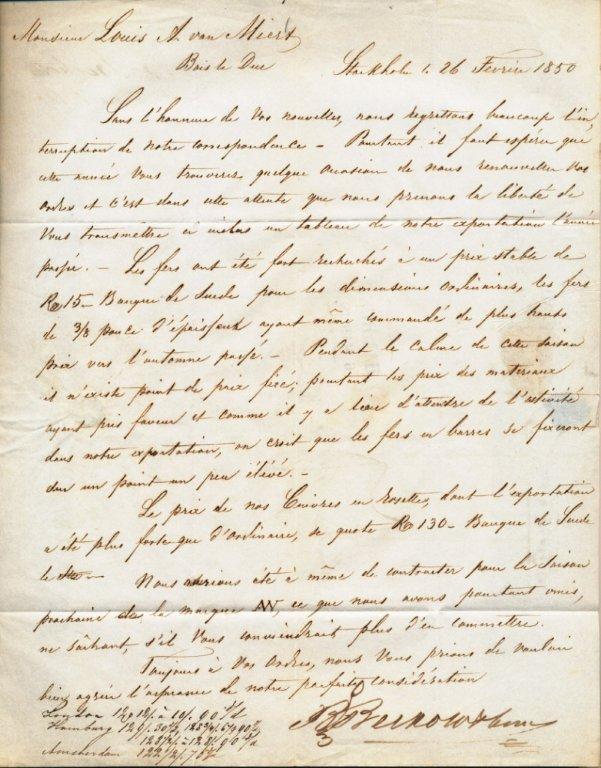 Monsieur Louis A. van Miert
Bois le Duc
Stockholm le 26 Fevrier 1850
Sans l'honneur de Vos nouvelles, nous regrettons beaucoup l'in,
terruption de notre correspondence – Pourtant il faut espérer que
cette année Vous trouverez quelque occasion de nous renouveller Vos
ordres et c'est dans cette attente que nous prenons la liberté de
Vous transmettre ci inclus un tableau de notre exportation l'année
passée. – Les fers ont été fort recherchés à un prix stable de
15 – Banque de Suede pour les dimensions ordinaires, les fers
de 3/8 pouce d'épaisseur ayant même commandé de plus hauts
prix vers l'automne passé. – Pendant le calme de cette saison
il n'existe point de prix fixé; pourtant les prix des materiaux
ayant pris faveur et comme il y a lieu d'attendre de l'activité
dans notre exportation, on croit que les fers en barres se fixeront
sur un point un peu élévé. –
Le prix de nos Cuivres en rosettes, dont l'exportation
a été plus forte que d'ordinaire, se quote 130 – Banque de Suede
le
Nous aurions été à même de contracter pour la saison
prochaine de la marque, ce que nous avons pourtant omis,
ne sachant, s'il Vous conviendrait plus d'en commettre.
Toujours à Vos ordres, nous Vous prions de vouloir
bien agréer l'assurance de notre parfaite considération
London
Hamburg
Amsterdam